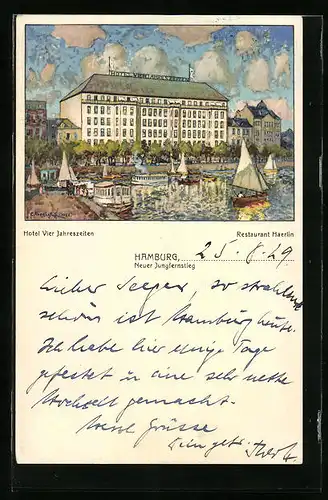 HOTEL VIER JAHRESZEITEN
Hotel Vier Jahreszeiten
Restaurant Haerlin
HAMBURG, 25. 8. 29
Neuer Jungfernstieg
Lieber Seeger, so strahlend
schön ist Hamburg heute.
Ich habe hier einige Tage
gefestet u eine sehr nette
Hochzeit gemacht.
Grüsse
Dein getr.